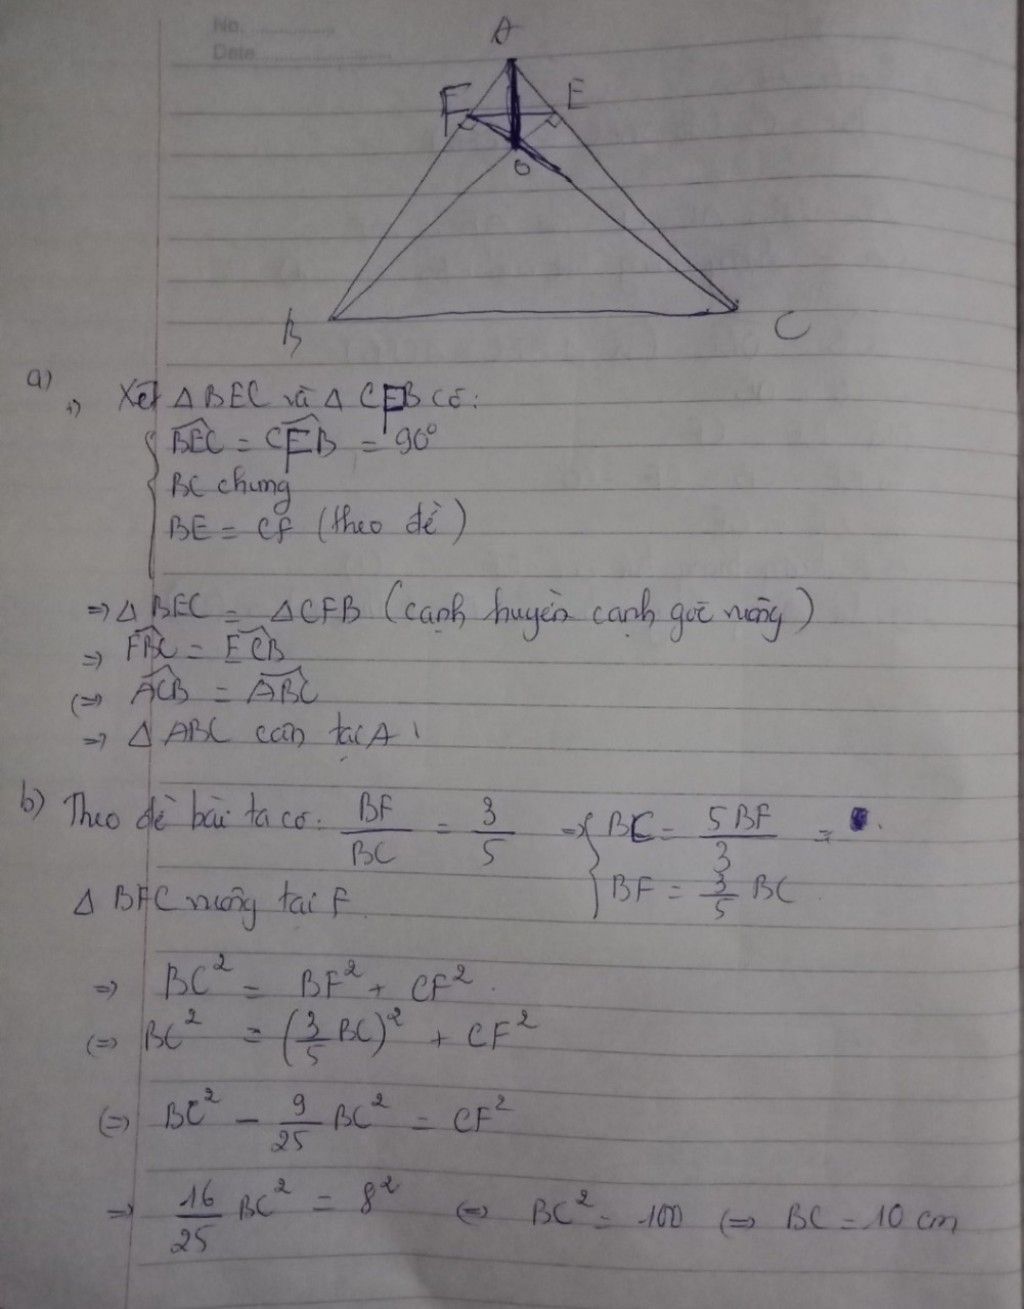 No.
Date
A
F E
O
B C
a)
1) Xét Δ BEC và Δ CFB có:
BEC = CFB = 90°
BC chung
BE = CF (theo đề)
=> Δ BEC = ΔCFB (cạnh huyền cạnh góc vuông)
=> FBC = ECB
<=> ACB = ABC
=> Δ ABC cân tại A
b) Theo đề bài ta có: BF/BC = 3/5 => { BC = 5BF/3 =
Δ BFC vuông tại F BF = 3/5 BC
=> BC² = BF² + CF².
<=> BC² = (3/5 BC)² + CF²
<=> BC² - 9/25 BC² = CF²
=> 16/25 BC² = 8² <=> BC² = 100 <=> BC = 10 cm